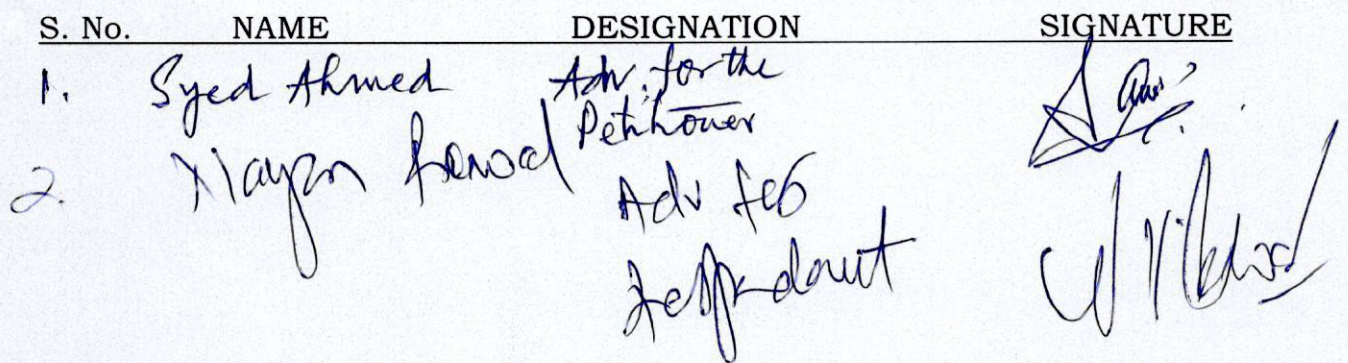 S. No. NAME DESIGNATION SIGNATURE
1. Syed Ahmed Adv. for the
Petitioner
2. Adv for
Respondent